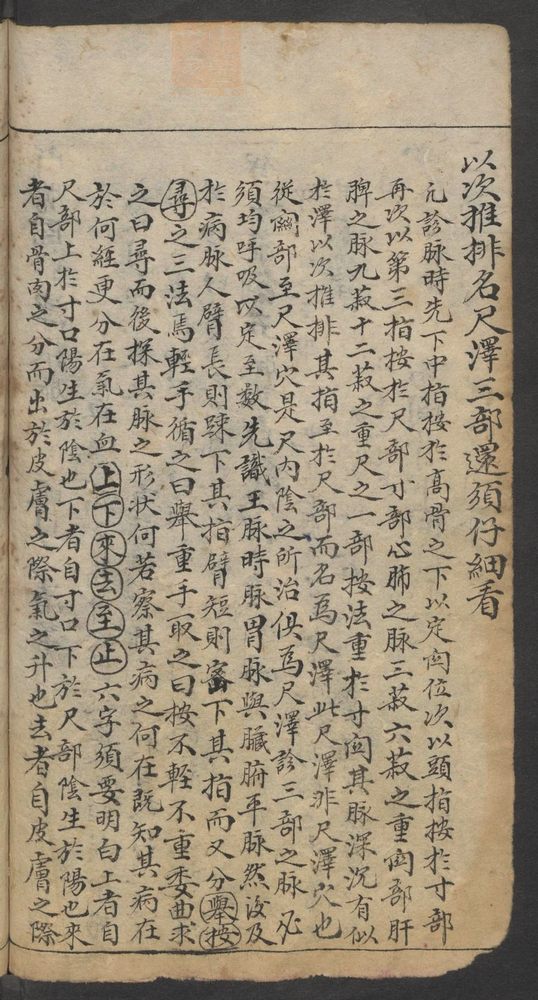 以次推排名尺澤三部還須仔細看
凡診脉時先下中指按於髙骨之下以定関位次以頭指按於寸部
再次以第三指按於尺部寸部心肺之脉三菽六菽之重関部肝
脾之脉九菽十二菽之重尺之一部按法重於寸関其脉深沉有似
於澤以次推排其指至於尺部而名爲尺澤此尺澤非尺澤穴也
從関部至尺澤穴是尺内陰之所治俱爲尺澤診三部之脉必
須均呼吸以定至數先識王脉時脉胃脉與臟腑平脉然後及
於病脉人臂長則踈下其指臂短則宻下其指而又分舉按
尋之三法焉輕手循之曰舉重手取之曰按不輕不重委曲求
之曰尋而後探其脉之形状何若察其病之何在既知其病在
於何經更分在氣在血上下來去至止六字須要明白上者自
尺部上於寸口陽生於陰也下者自寸口下於尺部陰生於陽也來
者自骨肉之分而出於皮膚之際氣之升也去者自皮膚之際